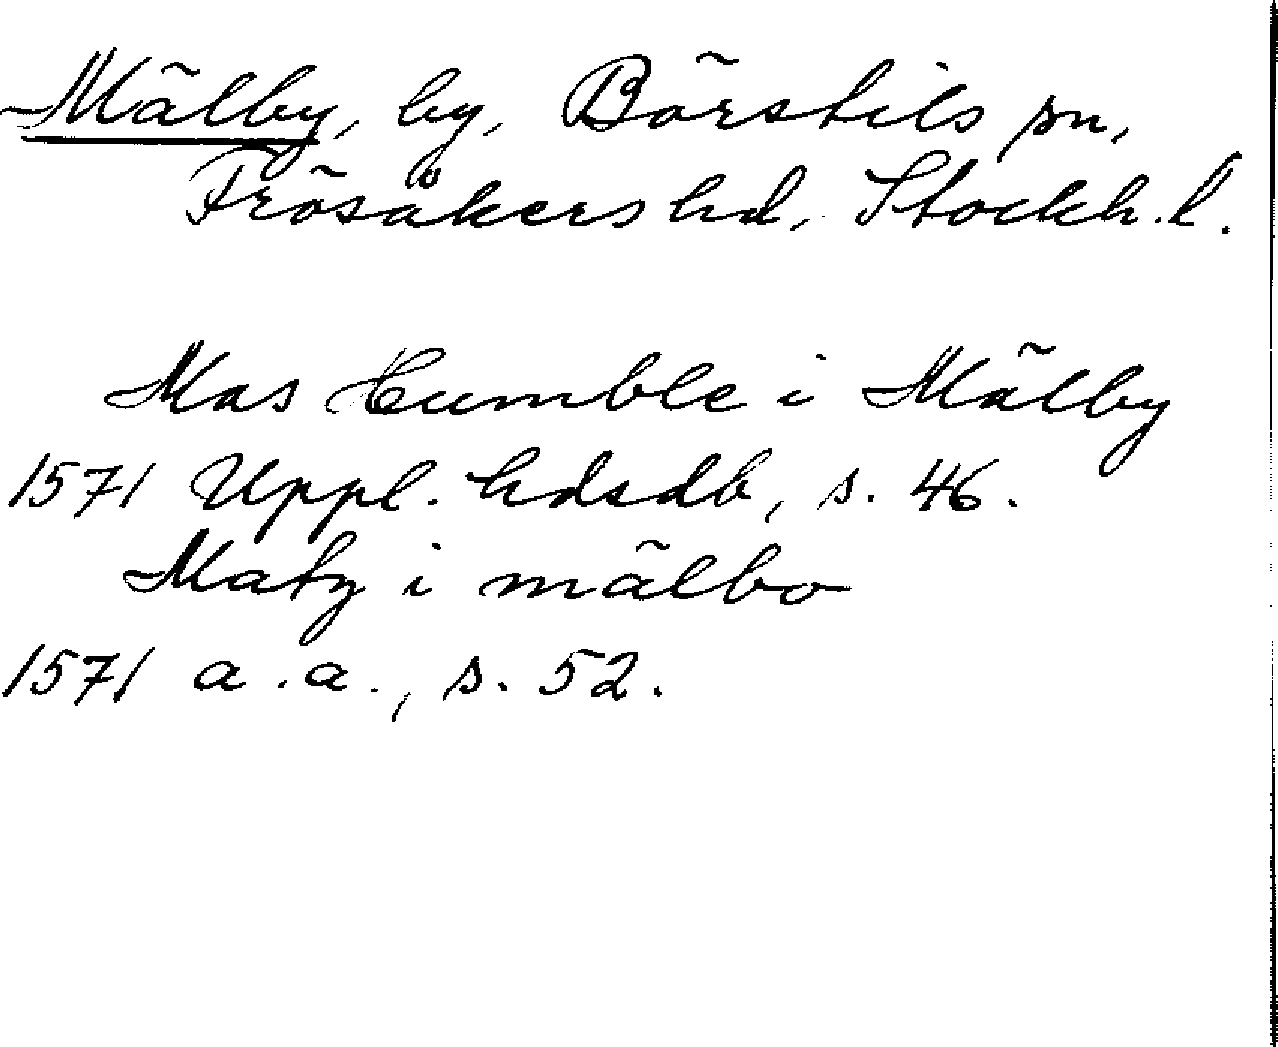 Mälby, by, Börstils sn,
Frösåkers hd, Stockh. l.
Mas Humble i Mälby
1571 Uppl. hdsdb, s. 46.
Matz i mälbo
1571 a. a., s. 52.